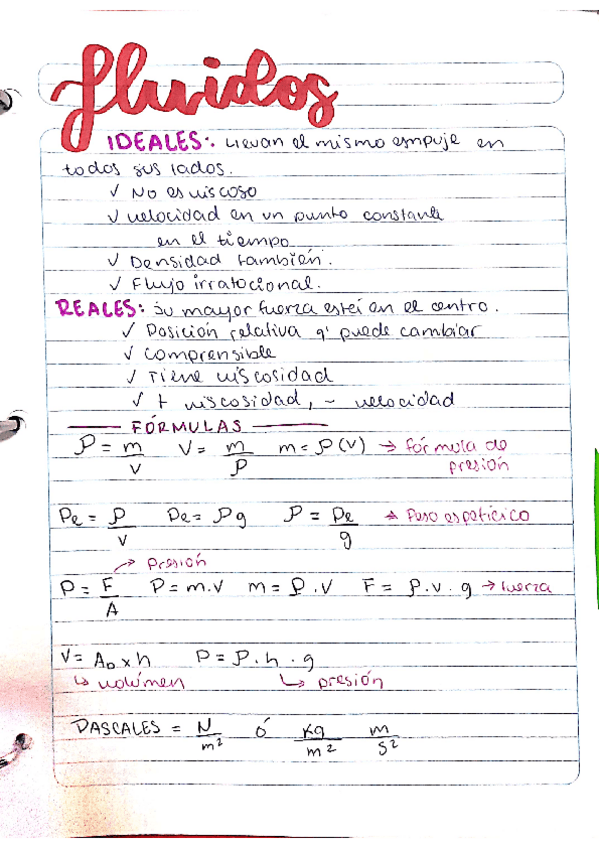 fluidos
IDEALES: Llevan el mismo empuje en
todos sus lados.
✓ No es viscoso
✓ velocidad en un punto constante
en el tiempo
✓ Densidad también.
✓ Flujo irratocional.
REALES: su mayor fuerza está en el centro.
✓ Posición relativa q' puede cambiar
✓ comprensible
✓ Tiene viscosidad
✓ + viscosidad, - velocidad
FÓRMULAS
ρ = m/v V = m/ρ m = ρ(v) → fórmula de
presión
Pe = P/v Pe = ρg ρ = Pe/g → Peso espeficico
→ Presión
P = F/A P = m.v m = ρ.v F = ρ.v.g → fuerza
V = Ab x h P = ρ.h.g
↳ volúmen ↳ presión
PASCALES = N/m² ó kg/m² m/s²